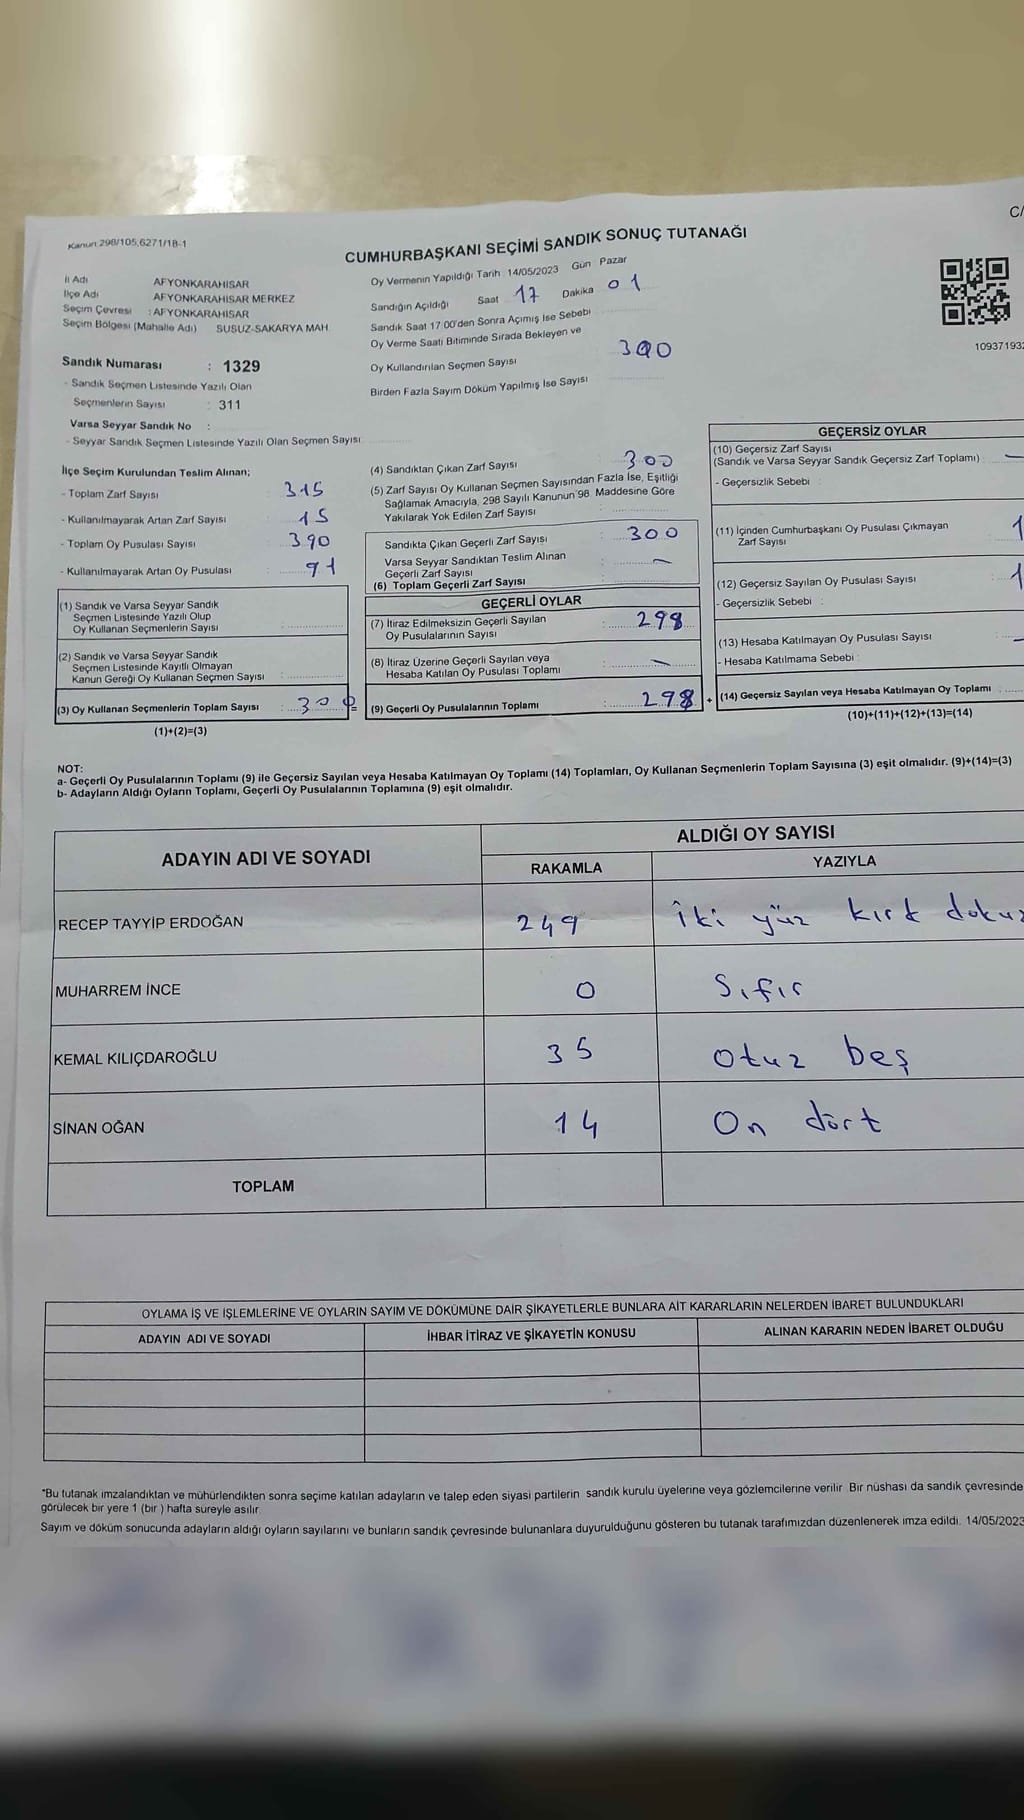 Kanun 298/105,6271/18-1
C/
CUMHURBAŞKANI SEÇİMİ SANDIK SONUÇ TUTANAĞI
İl Adı AFYONKARAHİSAR
İlçe Adı AFYONKARAHİSAR MERKEZ
Seçim Çevresi : AFYONKARAHİSAR
Seçim Bölgesi (Mahalle Adı) SUSUZ-SAKARYA MAH.
Oy Vermenin Yapıldığı Tarih 14/05/2023 Gün Pazar
Sandığın Açıldığı Saat 17 Dakika 01
Sandık Saat 17:00'den Sonra Açımış İse Sebebi
Oy Verme Saati Bitiminde Sırada Bekleyen ve
Oy Kullandırılan Seçmen Sayısı 300
Birden Fazla Sayım Döküm Yapılmış İse Sayısı
10937193
Sandık Numarası : 1329
- Sandık Seçmen Listesinde Yazılı Olan
Seçmenlerin Sayısı : 311
Varsa Seyyar Sandık No :
- Seyyar Sandık Seçmen Listesinde Yazılı Olan Seçmen Sayısı
İlçe Seçim Kurulundan Teslim Alınan;
- Toplam Zarf Sayısı : 315
- Kullanılmayarak Artan Zarf Sayısı : 15
- Toplam Oy Pusulası Sayısı : 390
- Kullanılmayarak Artan Oy Pusulası : 91
(1) Sandık ve Varsa Seyyar Sandık
Seçmen Listesinde Yazılı Olup
Oy Kullanan Seçmenlerin Sayısı :
(2) Sandık ve Varsa Seyyar Sandık
Seçmen Listesinde Kayıtlı Olmayan
Kanun Gereği Oy Kullanan Seçmen Sayısı :
(3) Oy Kullanan Seçmenlerin Toplam Sayısı : 300 =
(1)+(2)=(3)
(4) Sandıktan Çıkan Zarf Sayısı : 300
(5) Zarf Sayısı Oy Kullanan Seçmen Sayısından Fazla İse, Eşitliği
Sağlamak Amacıyla, 298 Sayılı Kanunun'98. Maddesine Göre
Yakılarak Yok Edilen Zarf Sayısı :
Sandıkta Çıkan Geçerli Zarf Sayısı : 300
Varsa Seyyar Sandıktan Teslim Alınan
Geçerli Zarf Sayısı : —
(6) Toplam Geçerli Zarf Sayısı :
GEÇERLİ OYLAR
(7) İtiraz Edilmeksizin Geçerli Sayılan
Oy Pusulalarının Sayısı : 298
(8) İtiraz Üzerine Geçerli Sayılan veya
Hesaba Katılan Oy Pusulası Toplamı : —
(9) Geçerli Oy Pusulalarının Toplamı : 298 +
GEÇERSİZ OYLAR
(10) Geçersiz Zarf Sayısı
(Sandık ve Varsa Seyyar Sandık Geçersiz Zarf Toplamı) : —
- Geçersizlik Sebebi :
(11) İçinden Cumhurbaşkanı Oy Pusulası Çıkmayan
Zarf Sayısı : 1
(12) Geçersiz Sayılan Oy Pusulası Sayısı : 1
- Geçersizlik Sebebi :
(13) Hesaba Katılmayan Oy Pusulası Sayısı : —
- Hesaba Katılmama Sebebi :
(14) Geçersiz Sayılan veya Hesaba Katılmayan Oy Toplamı :
(10)+(11)+(12)+(13)=(14)
NOT:
a- Geçerli Oy Pusulalarının Toplamı (9) ile Geçersiz Sayılan veya Hesaba Katılmayan Oy Toplamı (14) Toplamları, Oy Kullanan Seçmenlerin Toplam Sayısına (3) eşit olmalıdır. (9)+(14)=(3)
b- Adayların Aldığı Oyların Toplamı, Geçerli Oy Pusulalarının Toplamına (9) eşit olmalıdır.
ADAYIN ADI VE SOYADI
ALDIĞI OY SAYISI
RAKAMLA YAZIYLA
RECEP TAYYİP ERDOĞAN 249 İki yüz kırk dokuz
MUHARREM İNCE 0 Sıfır
KEMAL KILIÇDAROĞLU 35 Otuz beş
SİNAN OĞAN 14 On dört
TOPLAM
OYLAMA İŞ VE İŞLEMLERİNE VE OYLARIN SAYIM VE DÖKÜMÜNE DAİR ŞİKAYETLERLE BUNLARA AİT KARARLARIN NELERDEN İBARET BULUNDUKLARI
ADAYIN ADI VE SOYADI İHBAR İTİRAZ VE ŞİKAYETİN KONUSU ALINAN KARARIN NEDEN İBARET OLDUĞU
*Bu tutanak imzalandıktan ve mühürlendikten sonra seçime katılan adayların ve talep eden siyasi partilerin sandık kurulu üyelerine veya gözlemcilerine verilir. Bir nüshası da sandık çevresinde
görülecek bir yere 1 (bir ) hafta süreyle asılır.
Sayım ve döküm sonucunda adayların aldığı oyların sayılarını ve bunların sandık çevresinde bulunanlara duyurulduğunu gösteren bu tutanak tarafımızdan düzenlenerek imza edildi. 14/05/2023